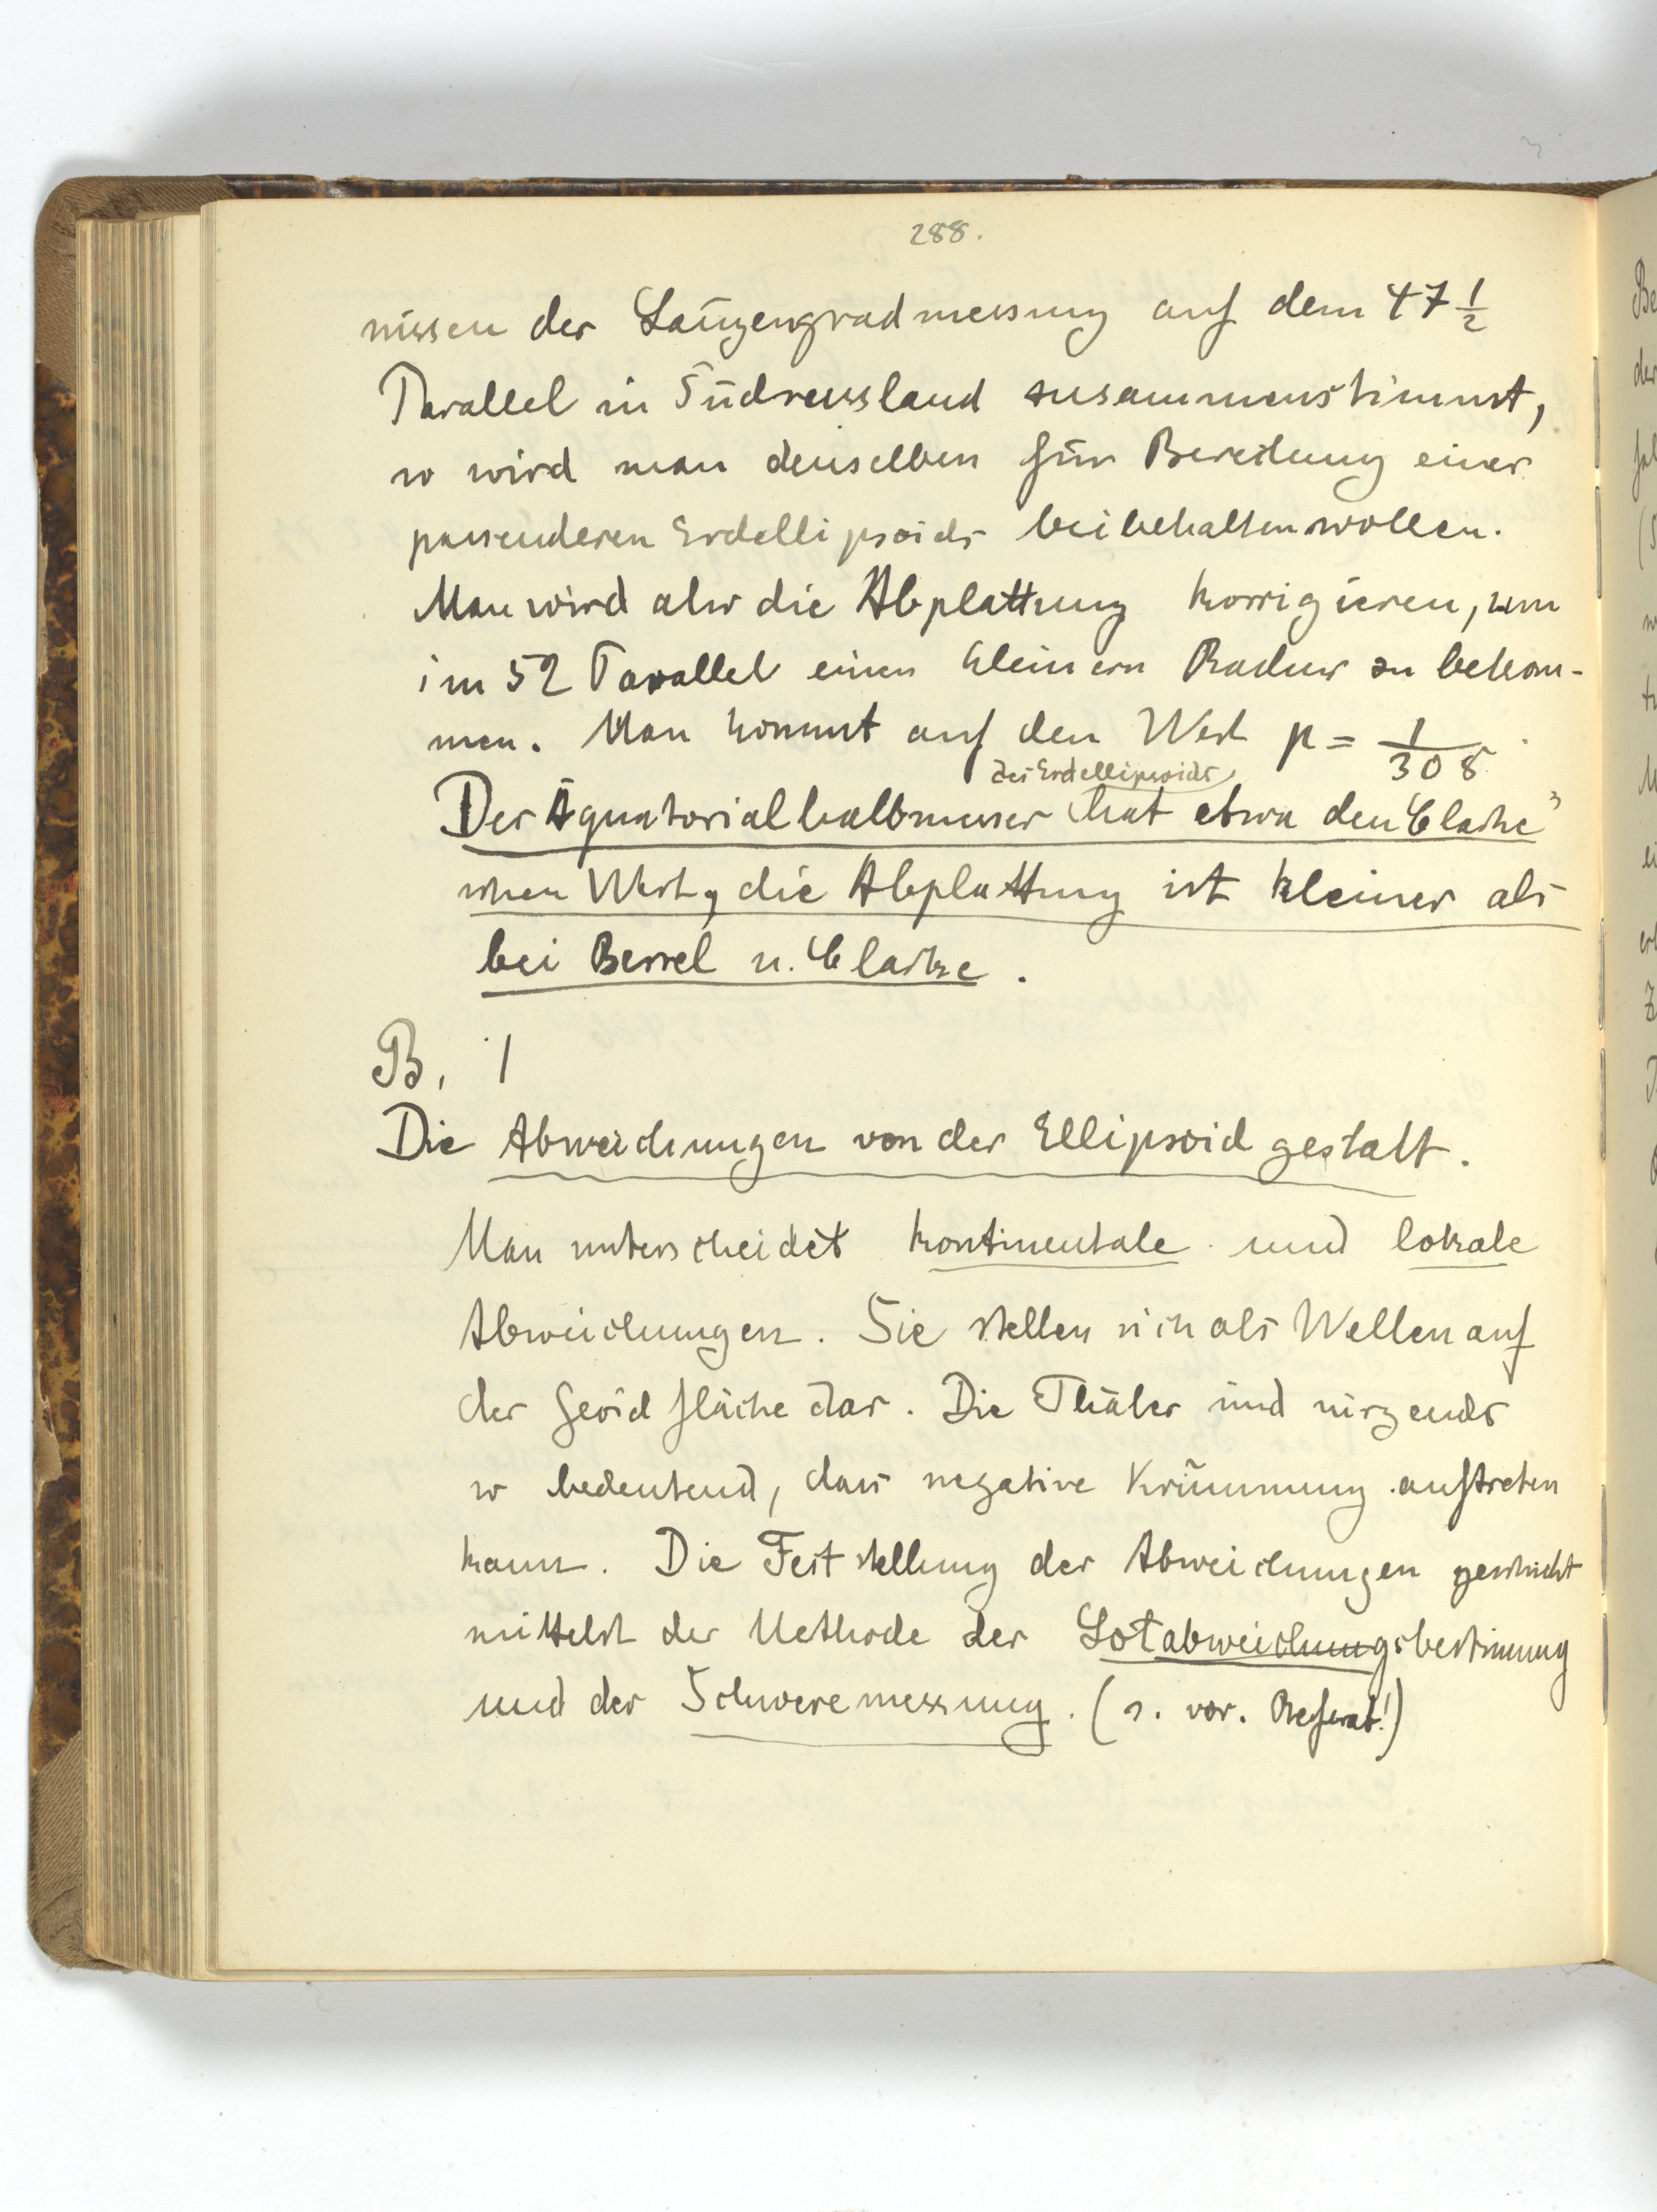 288.
nissen der Längengradmessung auf dem 47 1/2
Parallel in Südrussland zusammenstimmt,
so wird man denselben für Bereitung einer
passenderen Erdellipsoids beibehalten wollen.
Man wird also die Abplattung korrigieren, um
im 52 Parallel einen kleinern Radius zu bekom-
men. Man kommt auf den Wert p = 1/308.
des Erdellipsoids
Der Äquatorialhalbmesser hat etwa den Clarke"
schen Wert, die Abplattung ist kleiner als
bei Bessel u. Clarke.
B. 1
Die Abweichungen von der Ellipsoidgestalt.
Man unterscheidet kontinentale und lokale
Abweichungen. Sie stellen sich als Wellen auf
der Geoidfläche dar. Die Thäler sind nirgends
so bedeutend, dass negative Krümmung auftreten
kann. Die Feststellung der Abweichungen geschieht
mittelst der Methode der Lotabweichungsbestimmung
und der Schweremessung. (s. vor. Referat!)